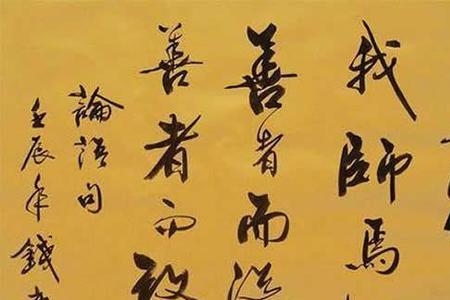 我師焉
善者而從
善者而改
論語句
壬辰年錢